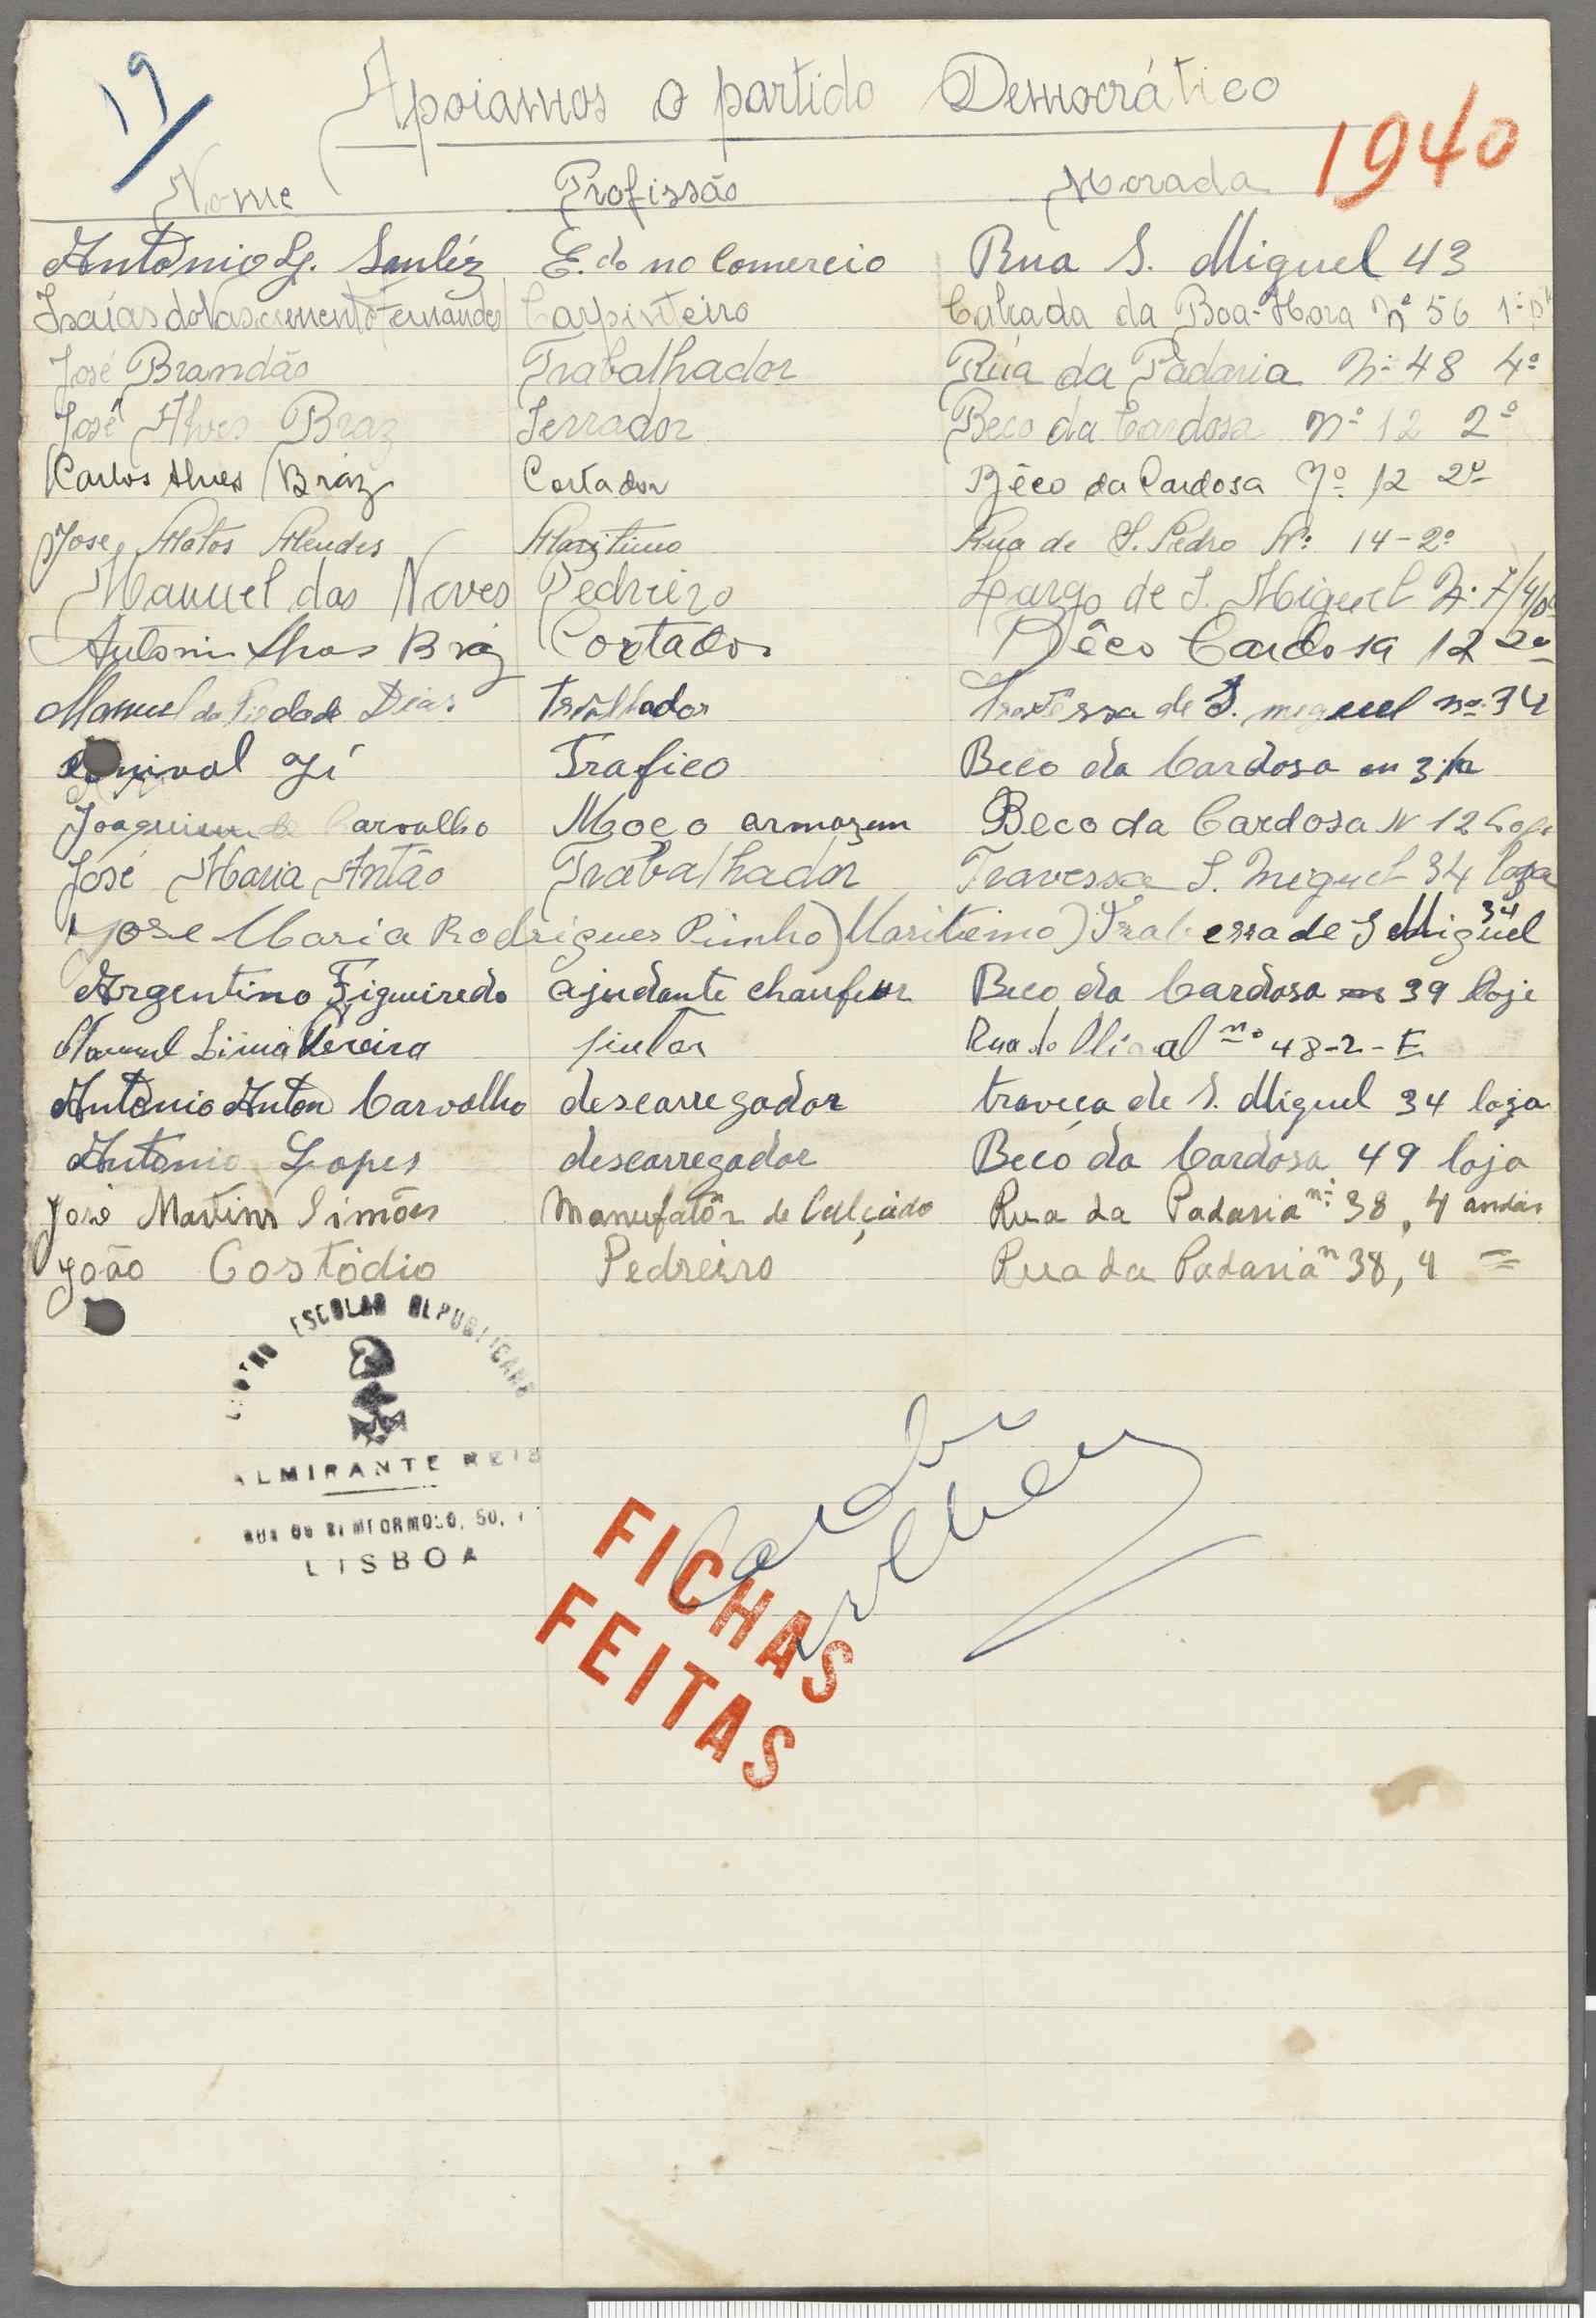 19
Apoiamos o partido Democrático
1940
Nome Profissão Morada
António L. E.do no Comercio Rua S. Miguel 43
Isaías do Nascimento Fernandes Carpinteiro Calçada da Boa-Hora nº 56 1º
José Brandão Trabalhador Rua da Padaria Nº 48 4º
José Alves Braz Serrador Beco da Cardosa nº 12 2º
Carlos Alves Bráz Cortador Bêco da Cardosa Nº 12 2º
Jose Matos Mendes Maritimo Rua de S. Pedro Nº 14-2º
Manuel das Neves Pedreiro Largo de S. Miguel Nº 7/4/0
Antoni Braz Cortador Bêco Cardosa 12 2º
Manuel da Piedade Dias Travessa de S. Miguel nº 34
Trafico Beco da Cardosa
Joaquim de Carvalho Moço armazem Beco da Cardosa N 12
José Maria Antão Trabalhador Travessa S. Miguel 34 loga
Jose Maria Rodrigues Pinho) Maritiemo) Trabessa de S Miguel 34
Argentino Figueiredo ajudante chaufeur Beco da Cardosa 39 loje
Manuel Lima Pereira pintor Rua do nº 48-2-E
António Anton Carvalho descarregador traveça de S. Miguel 34 loga
António Lopes descarregador Beco da Cardosa 49 loja
José Martins Simões Manufatôr de Calçado Rua da Padaria nº 38, 4 andar
João Costódio Pedreiro Rua da Padaria n 38, 4 =
CENTRO ESCOLAR REPUBLICANO
ALMIRANTE REIS
RUA DO BEMFORMOSO, 50, 1
LISBOA
FICHAS
FEITAS